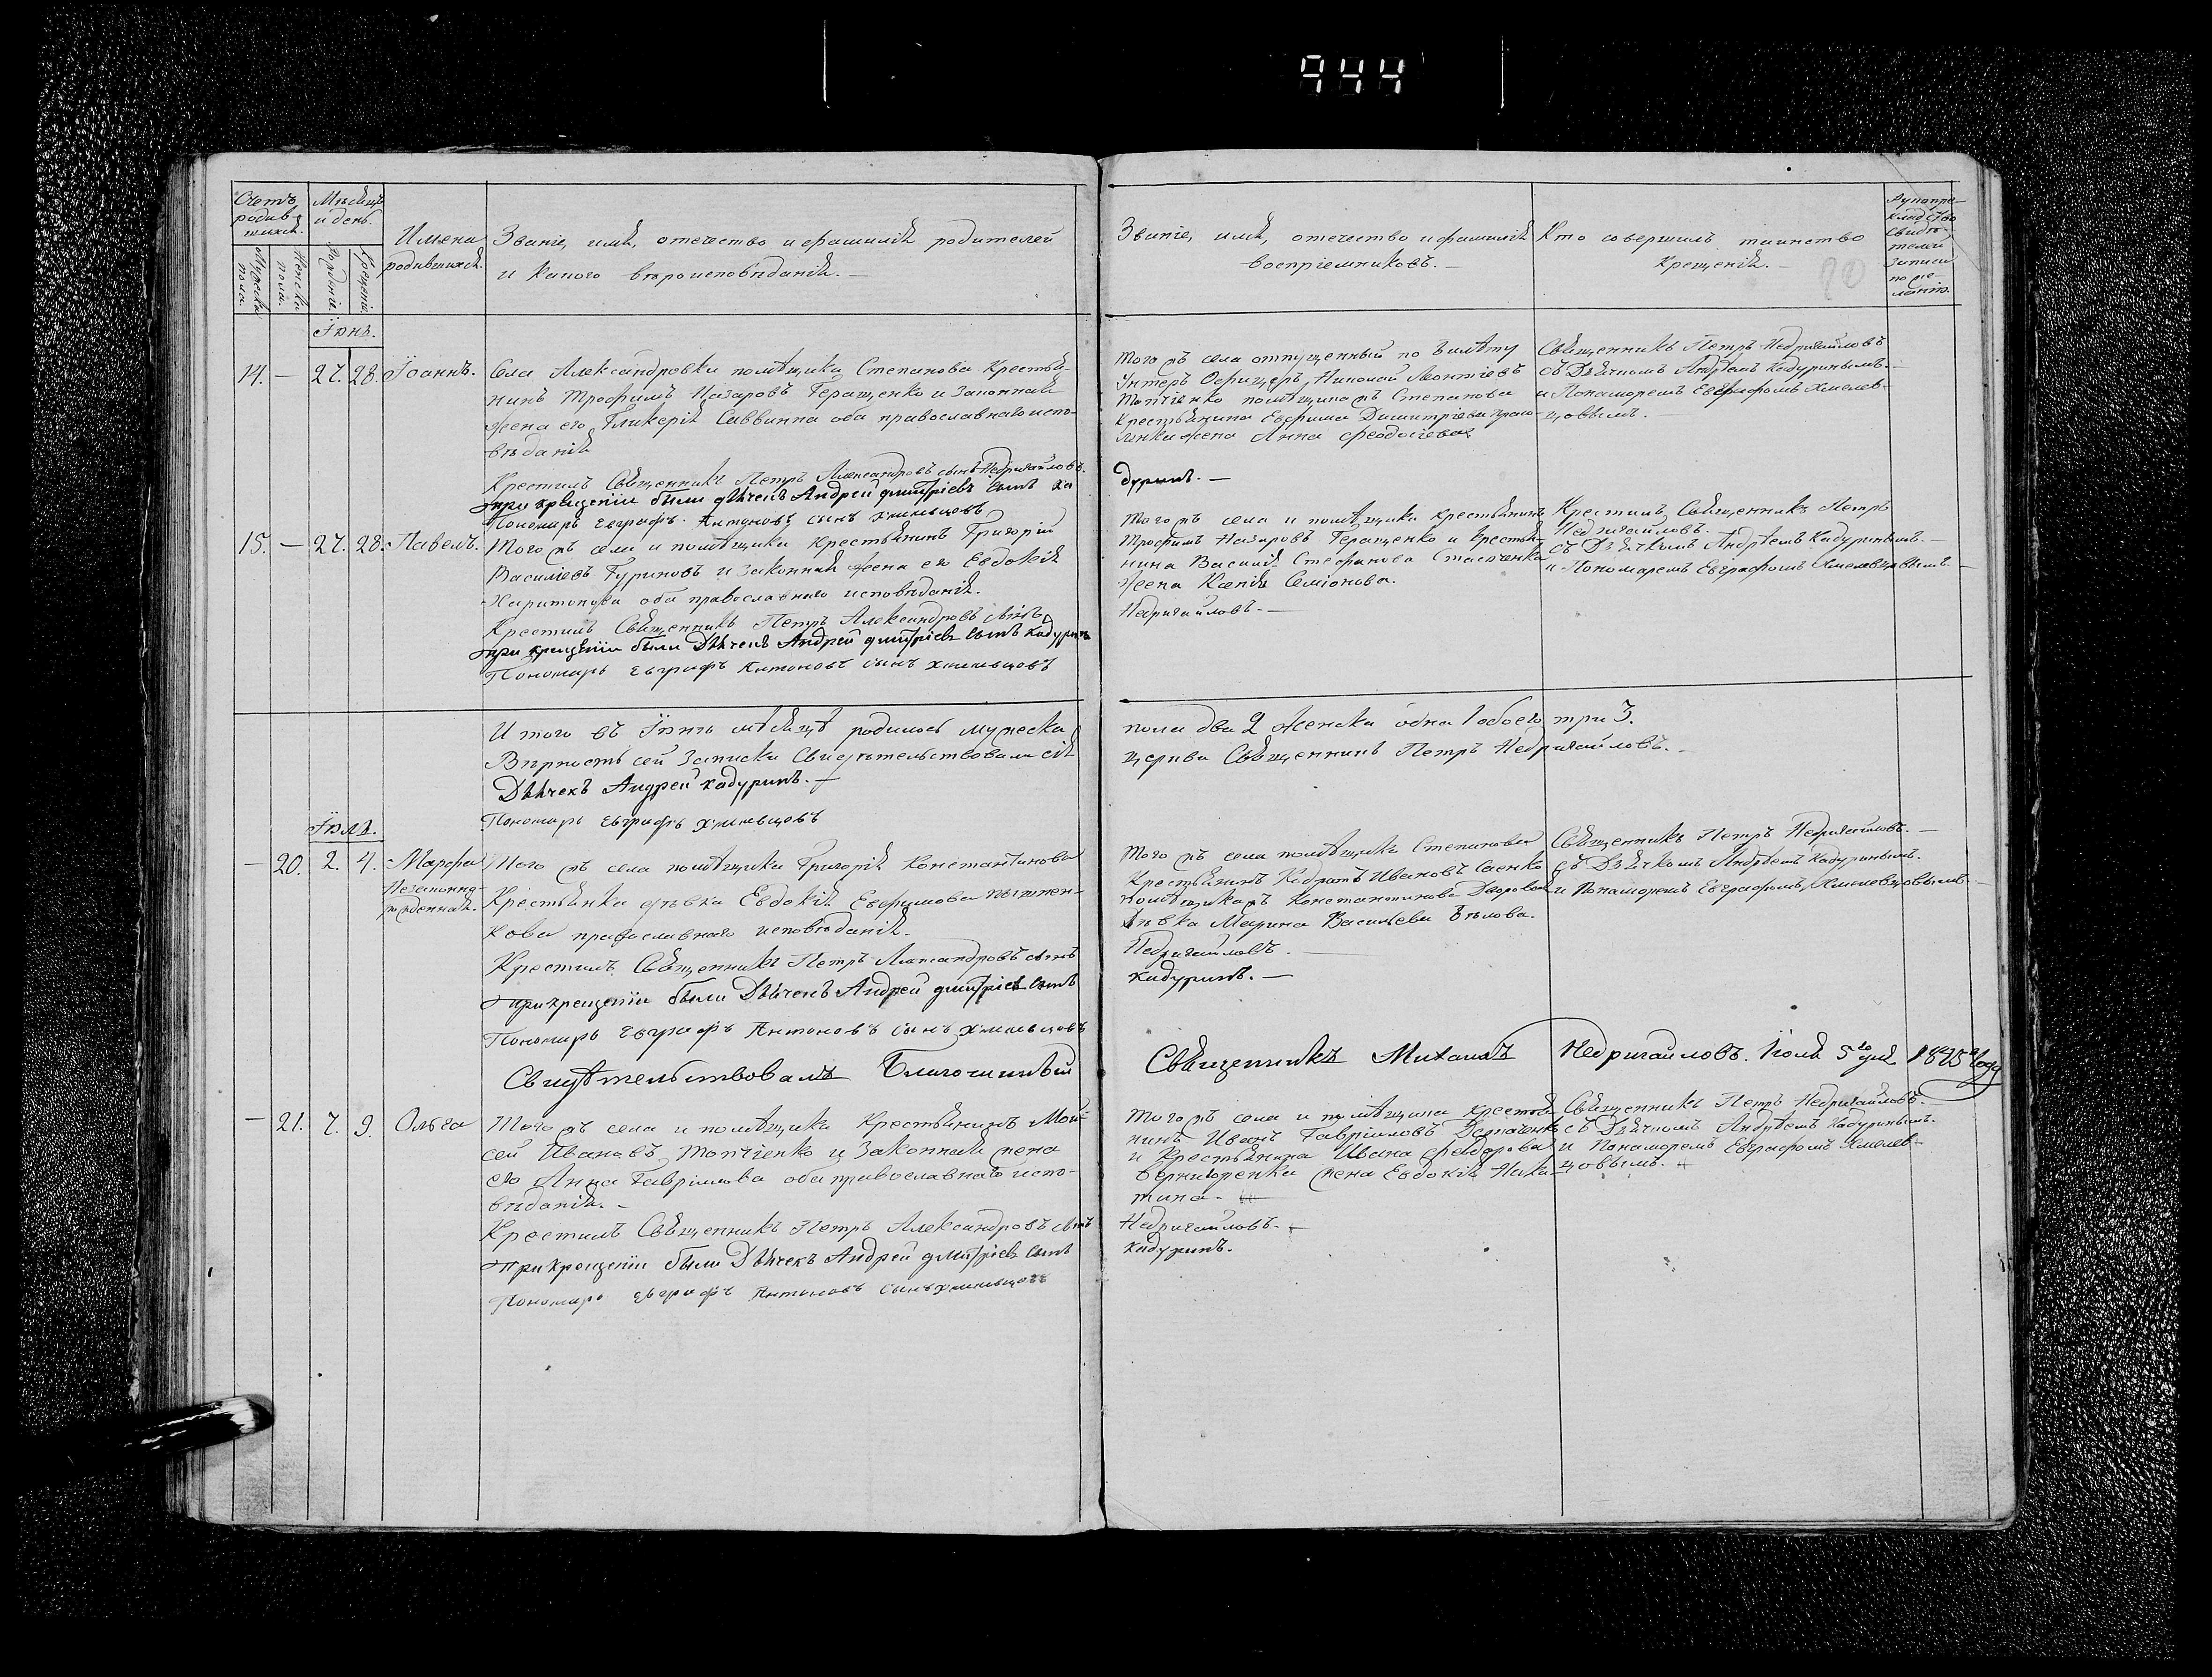 944
Счетъ родившихся.
Мѣсяцъ и день.
Мужска пола.
Женска пола.
Рожденія.
Крещенія.
Имяна родившихся.
Званіе, имя, отечество и фамилія родителей
и какого вѣроисповѣданія. —
Званіе, имя, отечество и фамилія
воспріемниковъ. —
Кто совершилъ таинство
крещенія. —
Рукопри-
кладство
свидѣ-
телей
записи
по же-
ланію.
Іюнь.
14. — 27. 28. Іоаннъ.
Села Александровки помѣщика Степанова крестья-
нинъ Трофимъ Назаровъ Геращенко и законная
жена его Гликерія Саввина оба православнаго испо-
вѣданія
Крестилъ Священникъ Петръ Александровъ сынъ Недригайловъ.
при крещеніи были Дьячекъ Андрей Дмитріевъ сынъ Ка
Пономарь Евграфъ Антоновъ сынъ Хмельцовъ
Того жъ села отпущенный по билету
Унтеръ Офицеръ Николай Леонтіевъ
Топчіенко помѣщика жъ Степанова
Крестьянина Ефима Димитріева
жена Анна Феодосіева
дуринъ. —
Священникъ Петръ Недригайловъ
съ Дьячкомъ Андреемъ Кадуринымъ. —
и Понамаремъ Евграфомъ Хмелев-
цовымъ. —
15. — 27. 28. Павелъ.
Того жъ села и помѣщика крестьянинъ Григорій
Василіевъ Гуриновъ и законная жена его Евдокія
Харитонова оба православнаго исповѣданія.
Крестилъ Священникъ Петръ Александровъ сынъ
при крещеніи были Дьячекъ Андрей Дмитріевъ сынъ Кадуринъ
Пономарь Евграфъ Антоновъ сынъ Хмельцовъ
Того жъ села и помѣщика крестьянинъ
Трофимъ Назаровъ Геращенко и крестья-
нина Василія Стефанова
жена Ксенія Семіонова.
Недригайловъ. —
Крестилъ Священникъ Петръ
Недригайловъ. —
съ Дьячкомъ Андреемъ Кадуринымъ. —
и Пономаремъ Евграфомъ Хмелевцовымъ. —
Итого въ Іюнѣ мѣсяцѣ родилось мужеска
пола два 2 женска одна 1 обоего три 3.
Вѣрность сей записки свидѣтельствовали сія
церкви Священникъ Петръ Недригайловъ. —
Дьячекъ Андрей Кадуринъ. —
Пономарь Евграфъ Хмельцовъ
Іюль.
— 20. 2. 4. Марфа
Незаконно-
рожденная.
Того жъ села помѣщика Григорія Константинова
Крестьянка дѣвка Евдокія Ефимова
кова православнаго исповѣданія.
Крестилъ Священникъ Петръ Александровъ сынъ
при крещеніи были Дьячекъ Андрей Дмитріевъ сынъ
Пономарь Евграфъ Антоновъ сынъ Хмельцовъ
Того жъ села помѣщика Степанова
Крестьянинъ Кодратъ Ивановъ Саенко
помѣщика жъ Константинова Дворовая
дѣвка Марина Васильева Бѣлова.
Недригайловъ. —
Кадуринъ. —
Священникъ Петръ Недригайловъ. —
съ Дьячкомъ Андреемъ Кадуринымъ.
и Понамаремъ Евграфомъ Хмелевцовымъ. —
Свидѣтельствовалъ Благочинный
Священникъ Михаилъ Недригайловъ. Іюля 5го дня года
— 21. 7. 9. Ольга
Того жъ села и помѣщика крестьянинъ Мои-
сей Ивановъ Топчіенко и законная жена
его Анна Гавріилова оба православнаго испо-
вѣданія. —
Крестилъ Священникъ Петръ Александровъ сынъ
при крещеніи были Дьячекъ Андрей Дмитріевъ сынъ
Пономарь Евграфъ Антоновъ сынъ Хмельцовъ
Того жъ села и помѣщика крестья-
нинъ Иванъ Гавріиловъ
и Крестьянина Ивана Феодорова
жена Евдокія
Недригайловъ. —
Кадуринъ.
Священникъ Петръ Недригайловъ. —
съ Дьячкомъ Андреемъ Кадуринымъ.
и Понамаремъ Евграфомъ Хмелев-
цовымъ.